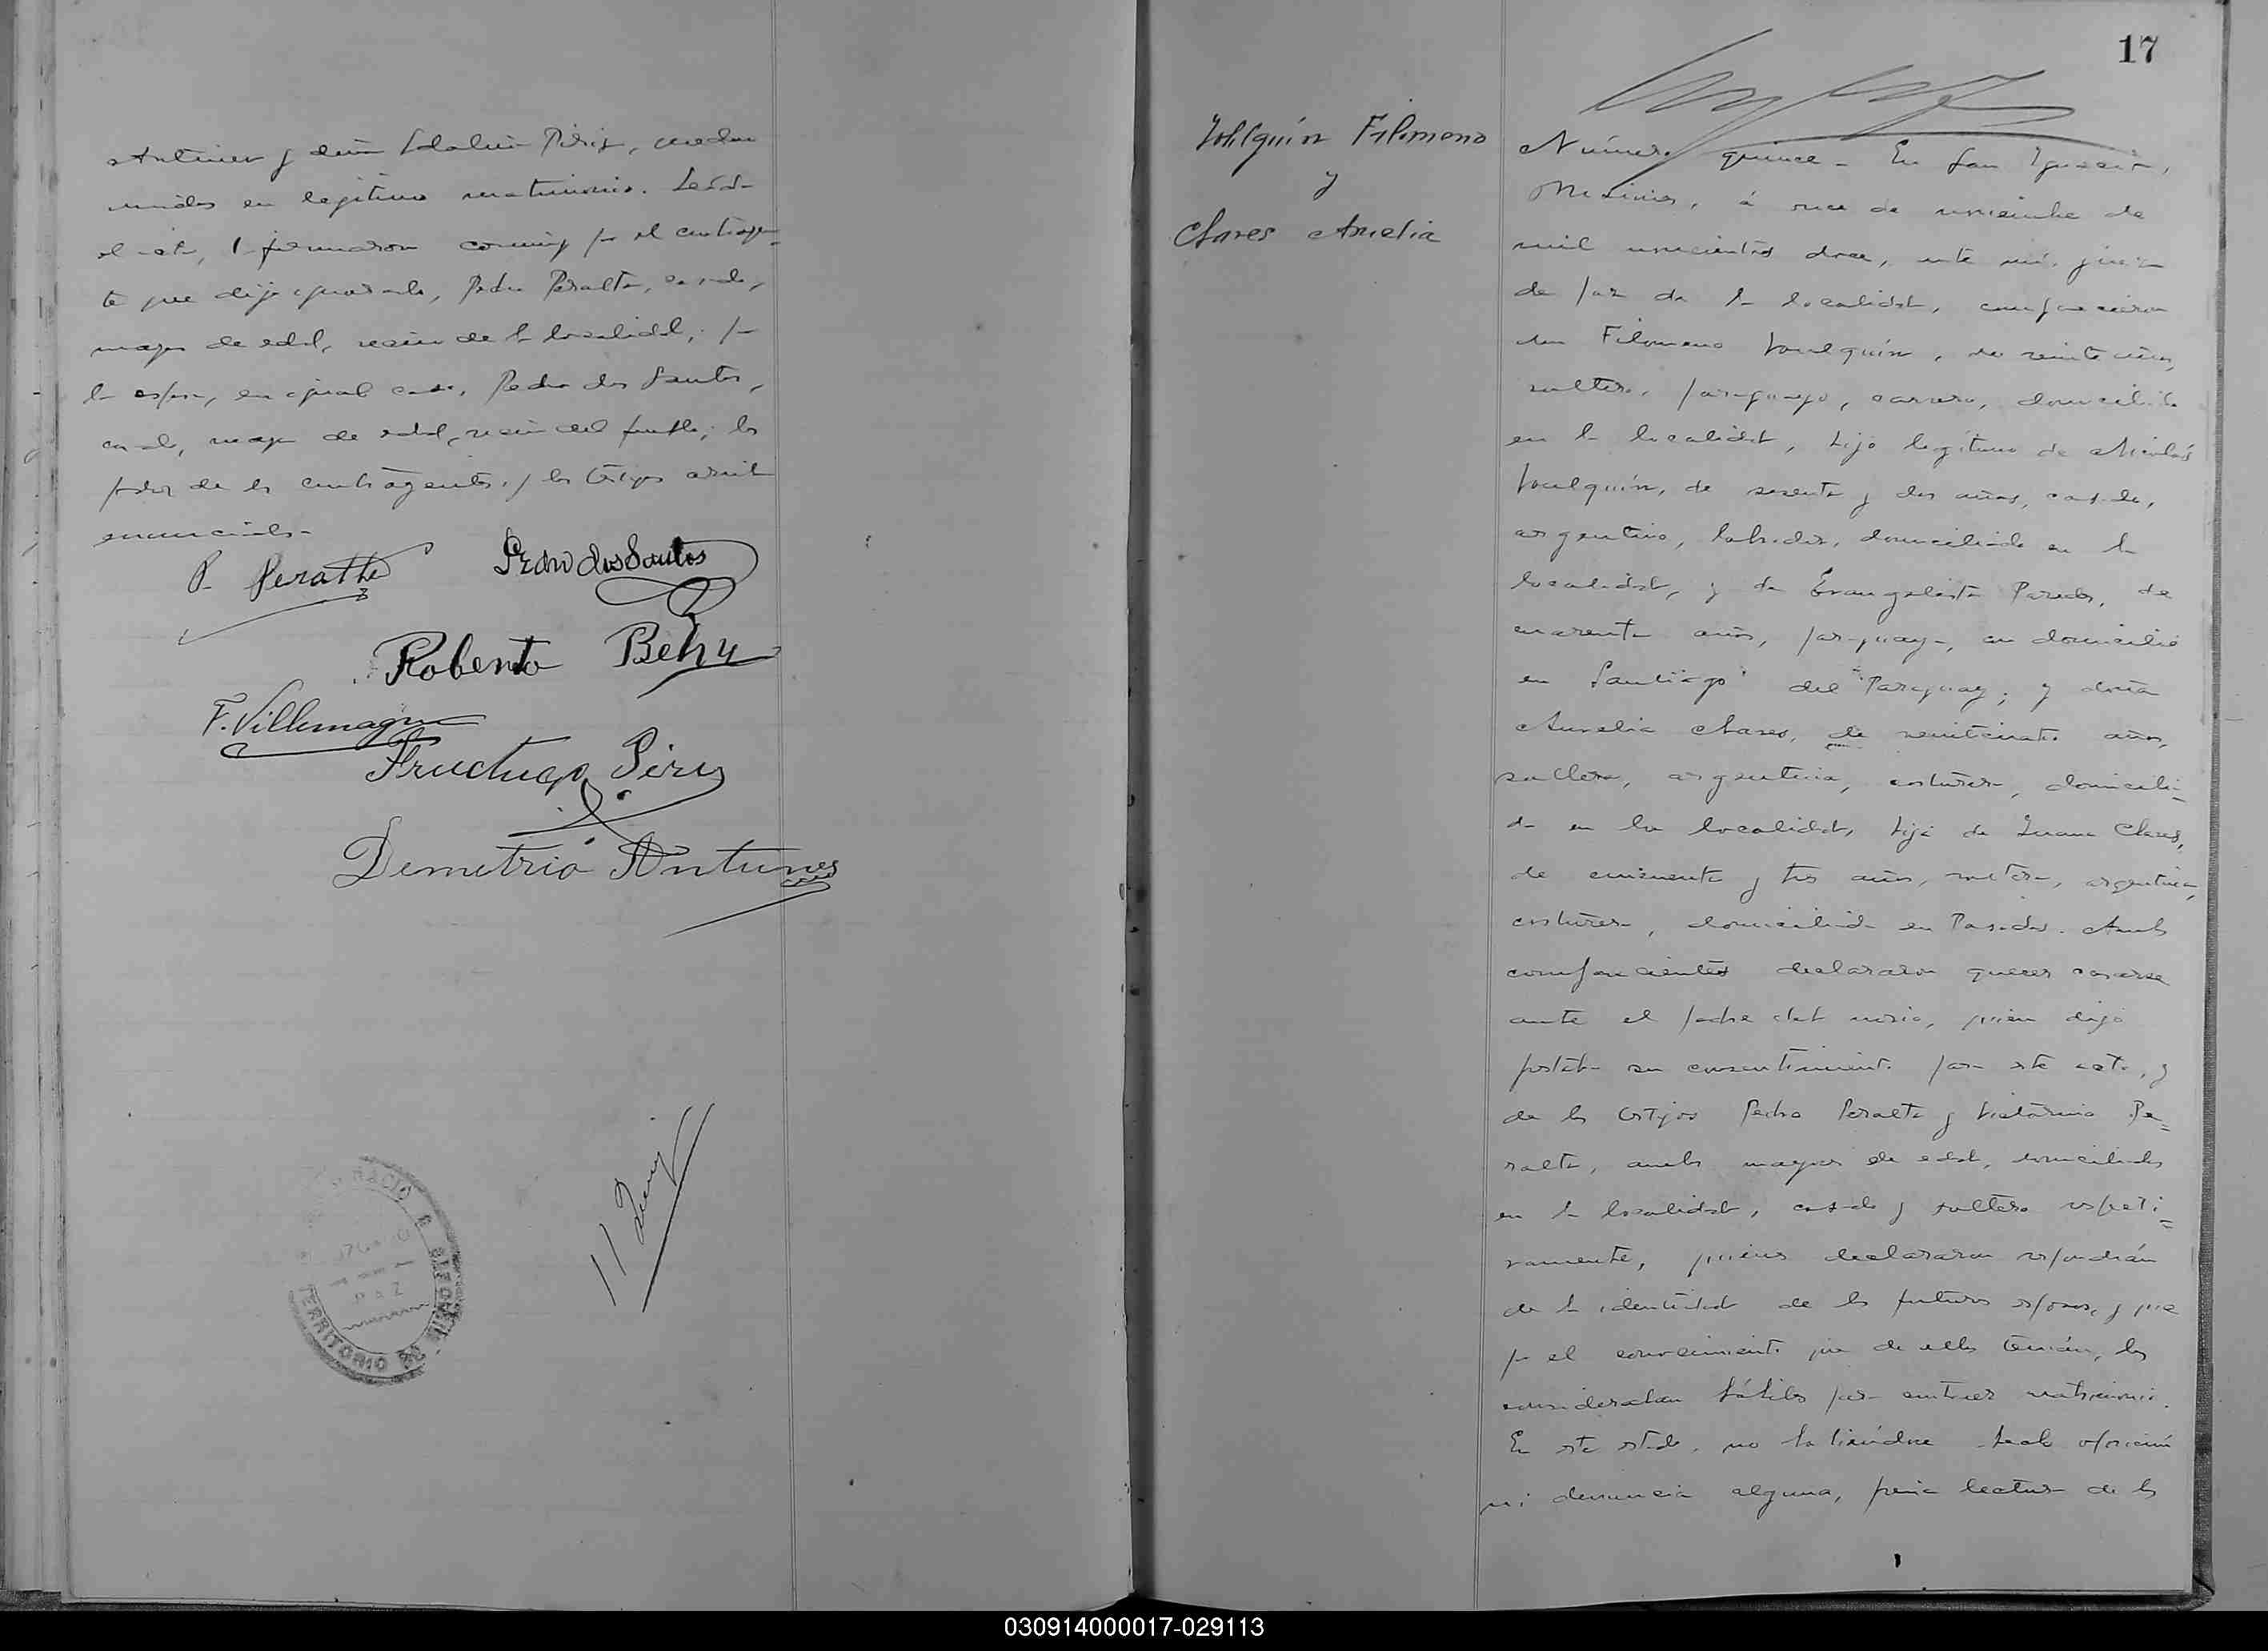 Antunes y doña Idalina Piriz, quedan
unidos en legítimo matrimonio. Leída
el acta, la firmaron conmigo por el contrayen=
te que dijo ignorarlo, Pedro Peralta, casado,
mayor de edad, vecino de la localidad; por
la esposa, en igual caso, Pedro dos Santos,
casado, mayor de edad, vecino del pueblo; los
padres de los contrayentes, y los testigos arriba
enunciados-
P. Peralta
Pedro dos Santos
Roberto Behy
F. Villemagne
Fructuoso Piriz
Demetrio Antunes
11
IGNACIO
PAZ
TERRITORIO DE MISIONES
17
Filomeno
y
Chares Aurelia
Número quince- En San Ignacio,
Misiones, á once de noviembre de
mil novecientos doce, ante mí, juez
de paz de la localidad, comparecieron
don Filomeno, de veinte años,
soltero, paraguayo, carrero, domiciliado
en la localidad, hijo legítimo de Nicolás
de sesenta y dos años, casado,
argentino, labrador, domiciliado en la
localidad, y de Evangelista Paredes, de
cuarenta años, paraguaya, con domicilio
en Santiago del Paraguay; y doña
Aurelia Chares, de veinticuatro años,
soltera, argentina, costurera, domicilia=
da en la localidad, hija de Juana Chares,
de cincuenta y tres años, soltera, argentina,
costurera, domiciliada en Posadas. Ambos
comparecientes declararon querer casarse
ante el padre del novio, quien dijo
prestaba su consentimiento para este acto, y
de los testigos Pedro Peralta y Victorino Pe=
ralta, ambos mayores de edad, domiciliados
en la localidad, casado y soltero respecti=
vamente, quienes declararon respondían
de la identidad de los futuros esposos, y que
por el conocimiento que de ellos tenían, los
consideraban hábiles para contraer matrimonio.
En este estado, no habiéndose hecho oposición
ni denuncia alguna, previa lectura de los
030914000017-029113